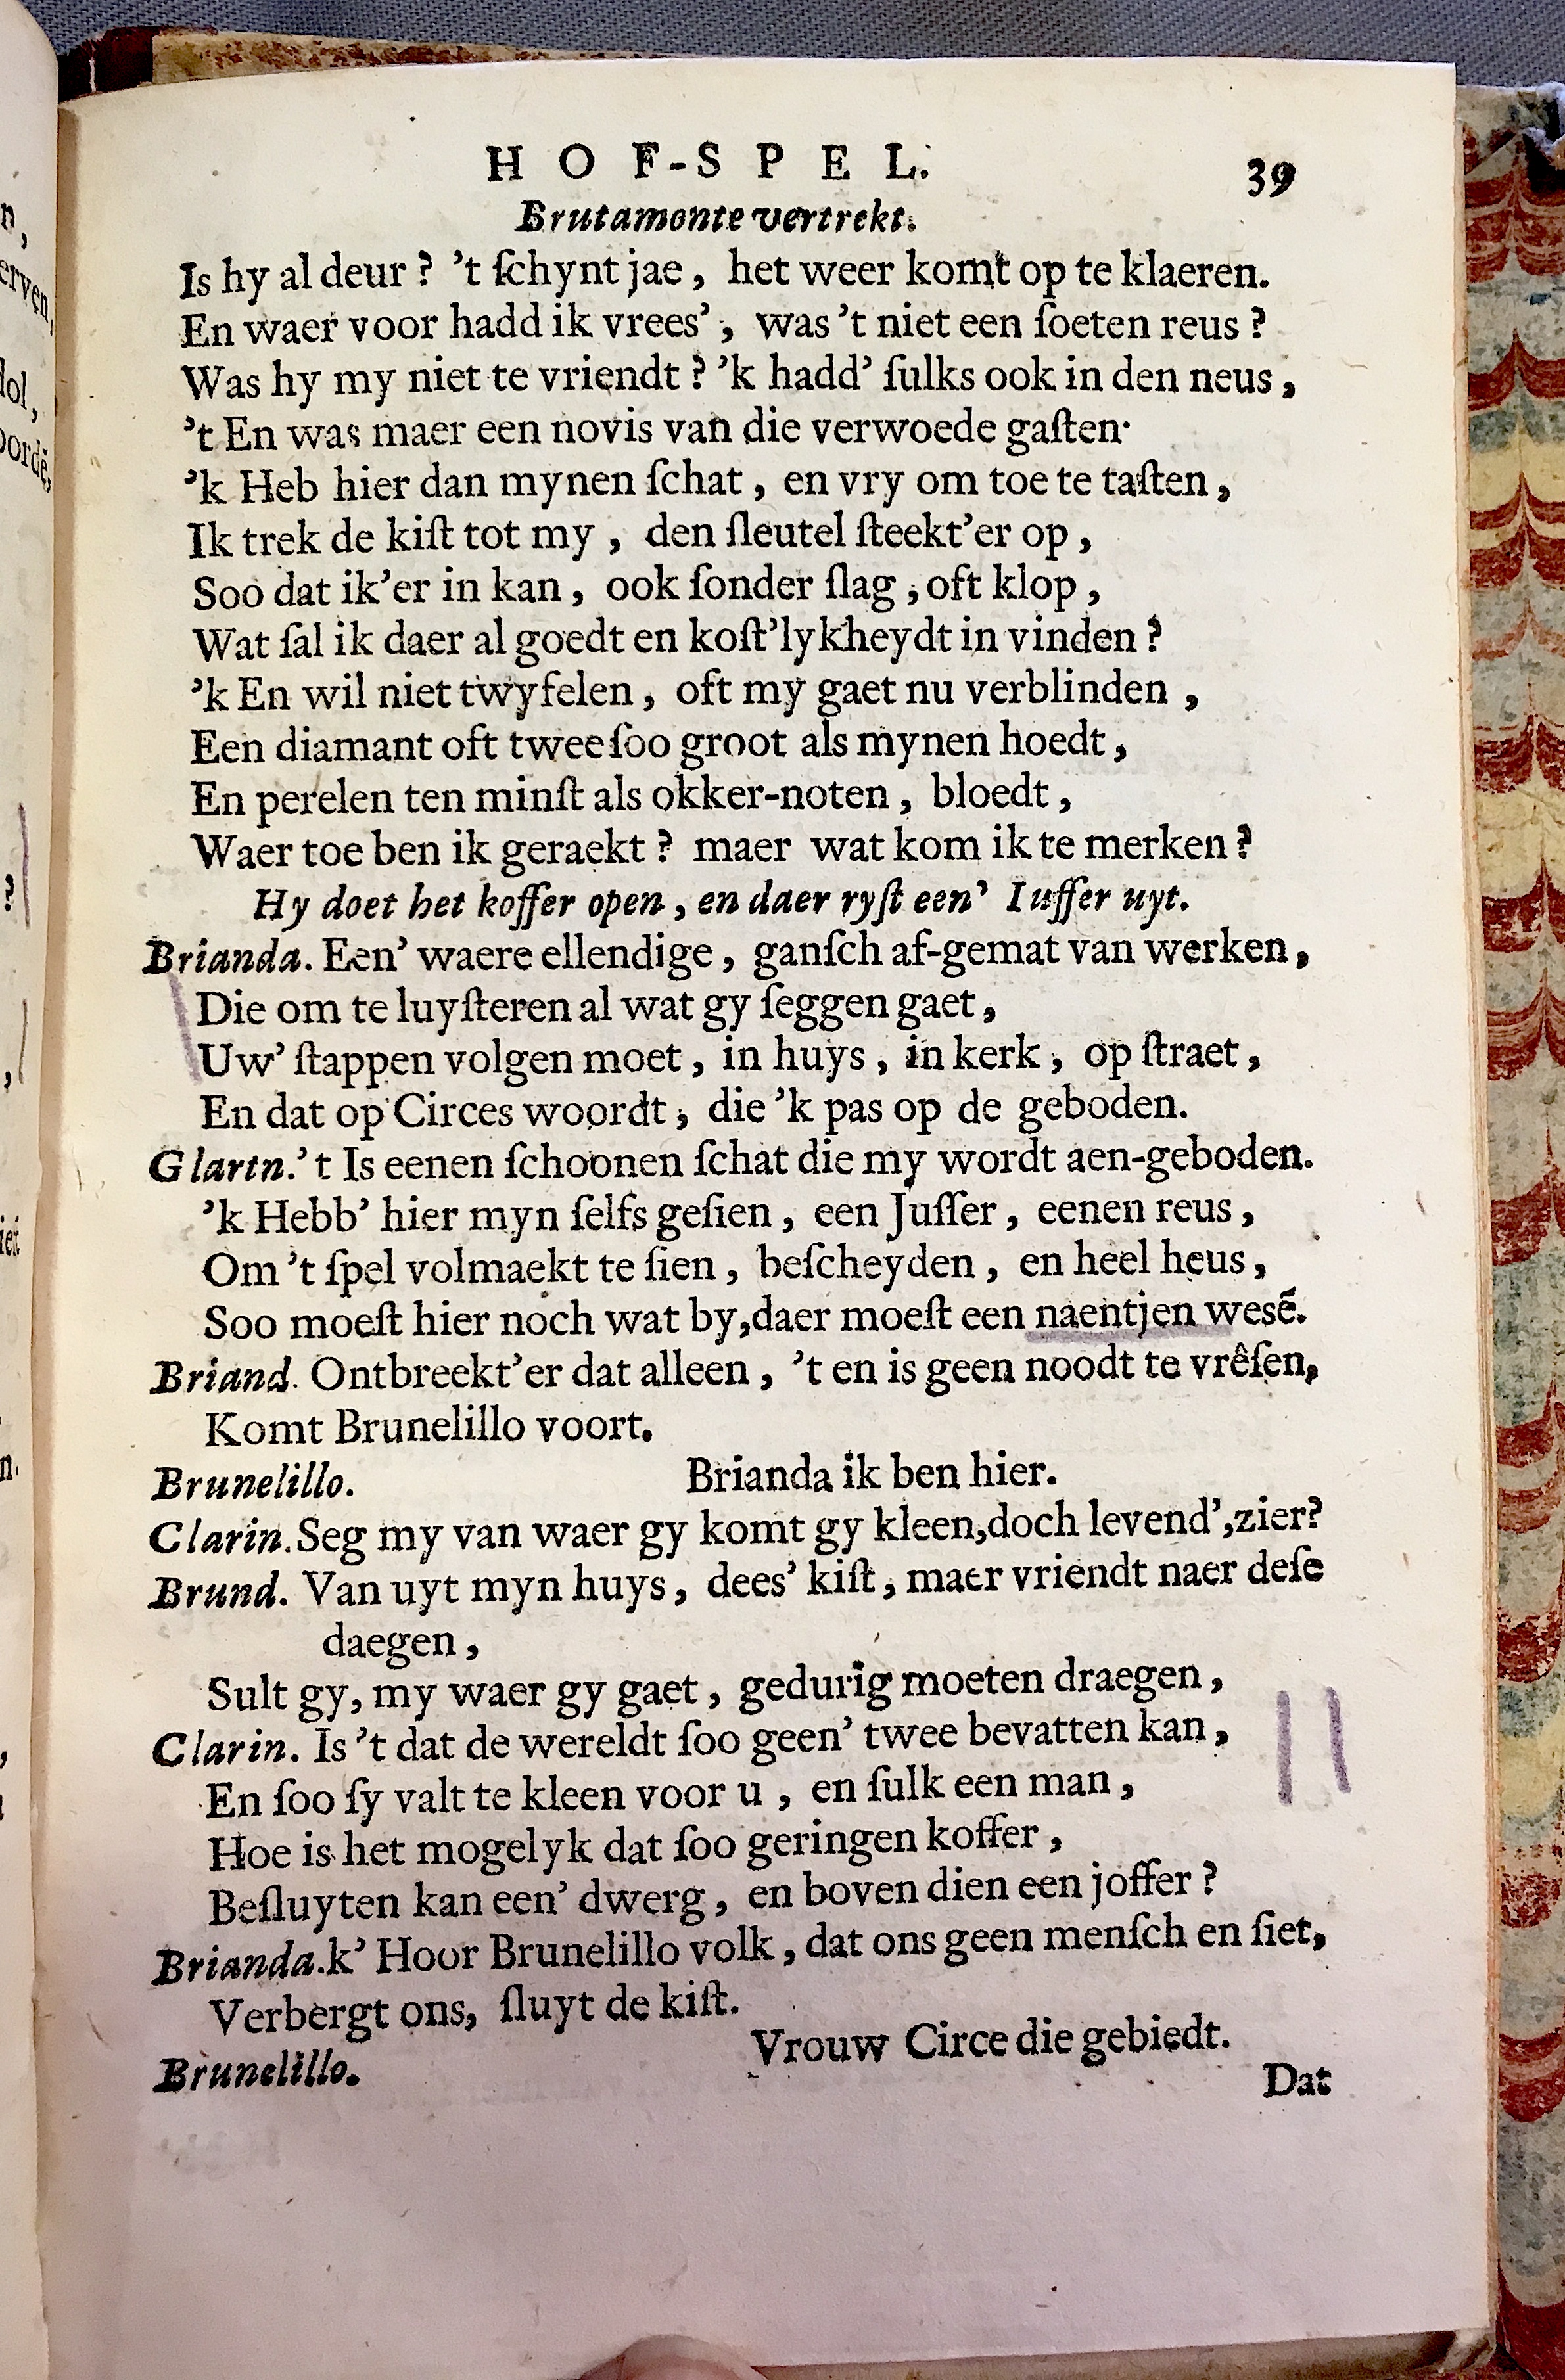 HOF-SPEL. 39
Brutamonte vertrekt.
Is hy al deur ? 't ſchynt jae , het weer komt op te klaeren.
En waer voor hadd ik vrees' , was 't niet een ſoeten reus ?
Was hy my niet te vriendt ? 'k hadd' ſulks ook in den neus ,
't En was maer een novis van die verwoede gaſten·
'k Heb hier dan mynen ſchat , en vry om toe te taſten ,
Ik trek de kiſt tot my , den ſleutel ſteekt'er op ,
Soo dat ik'er in kan , ook ſonder ſlag , oft klop ,
Wat ſal ik daer al goedt en koſt'lykheydt in vinden ?
'k En wil niet twyfelen , oft my gaet nu verblinden ,
Een diamant oft twee ſoo groot als mynen hoedt ,
En perelen ten minſt als okker-noten , bloedt ,
Waer toe ben ik geraekt ? maer wat kom ik te merken ?
Hy doet het koffer open , en daer ryſt een' Iuffer uyt.
Brianda. Een' waere ellendige , ganſch af-gemat van werken ,
Die om te luyſteren al wat gy ſeggen gaet ,
Uw' ſtappen volgen moet , in huys , in kerk , op ſtraet ,
En dat op Circes woordt , die 'k pas op de geboden.
Glartn.' t Is eenen ſchoonen ſchat die my wordt aen-geboden.
'k Hebb' hier myn ſelfs geſien , een Juſſer , eenen reus ,
Om 't ſpel volmaekt te ſien , beſcheyden , en heel heus ,
Soo moeſt hier noch wat by,daer moeſt een naentjen wesẽ.
Briand. Ontbreekt'er dat alleen , 't en is geen noodt te vrêſen,
Komt Brunelillo voort.
Brunelillo. Brianda ik ben hier.
Clarin. Seg my van waer gy komt gy kleen,doch levend',zier?
Brund. Van uyt myn huys , dees' kiſt , maer vriendt naer deſe
daegen ,
Sult gy, my waer gy gaet , gedurig moeten draegen ,
Clarin. Is 't dat de wereldt ſoo geen' twee bevatten kan ,
En ſoo ſy valt te kleen voor u , en ſulk een man ,
Hoe is het mogelyk dat ſoo geringen koffer ,
Beſluyten kan een' dwerg , en boven dien een joffer ?
Brianda. k' Hoor Brunelillo volk , dat ons geen menſch en ſiet,
Verbergt ons, ſluyt de kiſt.
Brunelillo. Vrouw Circe die gebiedt.
Dat